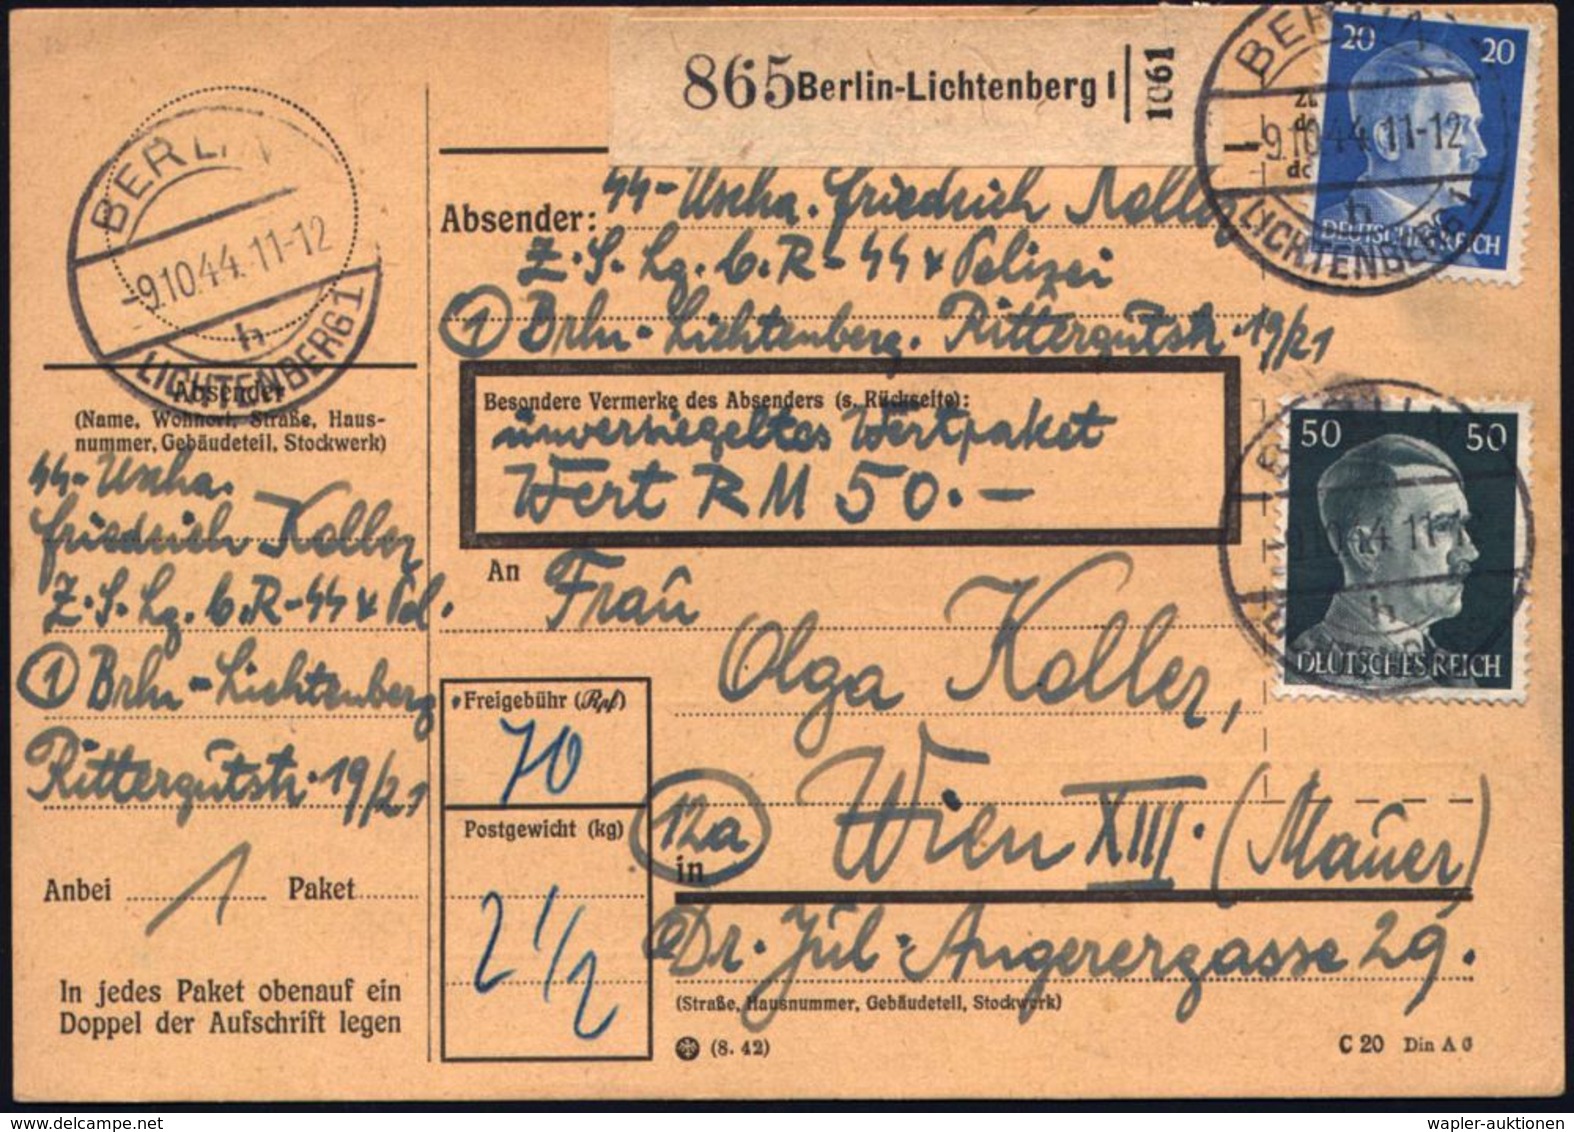 865 Berlin-Lichtenberg 1 1061
BERLIN
-9.10.44.11-12
h
LICHTENBERG 1
20 20
DEUTSCHES REICH
BERLIN
-9.10.44.11-12
h
LICHTENBERG 1
Absender: SS-Uscha. Friedrich Koller
Z.S.Lg. b. R-SS + Polizei
① Brln-Lichtenberg. Rittergutstr. 19/21
Besondere Vermerke des Absenders (s. Rückseite):
unversiegeltes Wertpaket
Wert RM 50.-
50 50
DEUTSCHES REICH
Absender
(Name, Wohnort, Straße, Haus-
nummer, Gebäudeteil, Stockwerk)
SS-Uscha.
Friedrich Koller
Z.S.Lg. b. R-SS + Pol.
① Brln-Lichtenberg
Rittergutstr. 19/21
Anbei 1 Paket
In jedes Paket obenauf ein
Doppel der Aufschrift legen
An Frau
Olga Koller,
Freigebühr (Rpf)
70
Postgewicht (kg)
2 1/2
12a
in Wien XIII. (Mauer)
Dr. Jul. Angerergasse 29.
(Straße, Hausnummer, Gebäudeteil, Stockwerk)
(8. 42)
C 20 Din A 6
wapler-auktionen